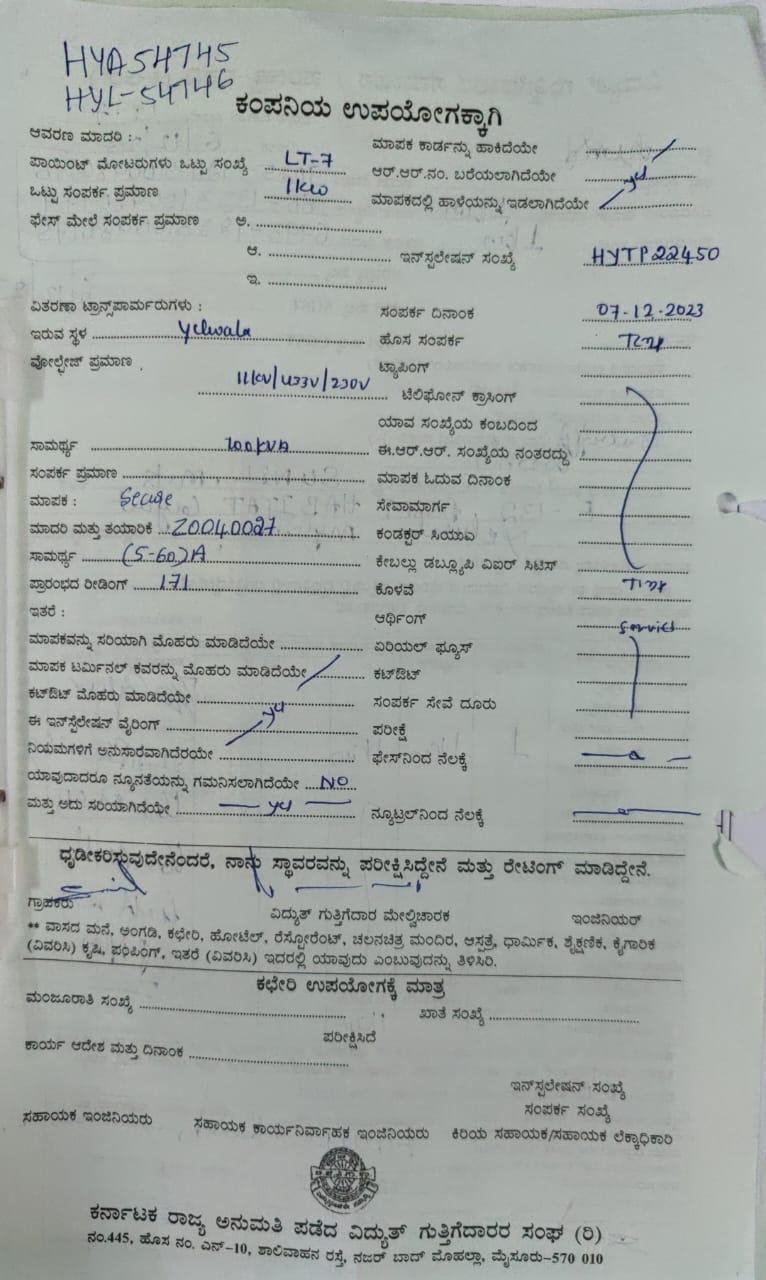 HYA54745
HYL-54746
ಕಂಪನಿಯ ಉಪಯೋಗಕ್ಕಾಗಿ
ಆವರಣ ಮಾದರಿ :
ಮಾಪಕ ಕಾರ್ಡನ್ನು ಹಾಕಿದೆಯೇ
ಪಾಯಿಂಟ್ ಮೋಟರುಗಳು ಒಟ್ಟು ಸಂಖ್ಯೆ LT-7
ಆರ್.ಆರ್.ನಂ. ಬರೆಯಲಾಗಿದೆಯೇ yes
ಒಟ್ಟು ಸಂಪರ್ಕ ಪ್ರಮಾಣ 1kw
ಮಾಪಕದಲ್ಲಿ ಹಾಳೆಯನ್ನು ಇಡಲಾಗಿದೆಯೇ
ಫೇಸ್ ಮೇಲೆ ಸಂಪರ್ಕ ಪ್ರಮಾಣ ಅ.
ಆ.
ಇನ್‌ಸ್ಟಲೇಷನ್ ಸಂಖ್ಯೆ HYTP22450
ಇ.
ವಿತರಣಾ ಟ್ರಾನ್ಸ್‌ಪಾರ್ಮರುಗಳು :
ಸಂಪರ್ಕ ದಿನಾಂಕ 07-12-2023
ಇರುವ ಸ್ಥಳ Yelwala
ಹೊಸ ಸಂಪರ್ಕ
ವೋಲ್ಟೇಜ್ ಪ್ರಮಾಣ 11kv/433v/230v
ಟ್ಯಾಪಿಂಗ್
ಟೆಲಿಫೋನ್ ಕ್ರಾಸಿಂಗ್
ಯಾವ ಸಂಖ್ಯೆಯ ಕಂಬದಿಂದ
ಸಾಮರ್ಥ್ಯ 100kVA
ಈ.ಆರ್.ಆರ್. ಸಂಖ್ಯೆಯ ನಂತರದ್ದು
ಸಂಪರ್ಕ ಪ್ರಮಾಣ
ಮಾಪಕ ಓದುವ ದಿನಾಂಕ
ಮಾಪಕ : Secure
ಸೇವಾಮಾರ್ಗ
ಮಾದರಿ ಮತ್ತು ತಯಾರಿಕೆ 20040027
ಕಂಡಕ್ಟರ್ ಸಿಯುಎ
ಸಾಮರ್ಥ್ಯ (5-60)A
ಕೇಬಲ್ಲು ಡಬ್ಲ್ಯೂಪಿ ವಿಐಆರ್ ಸಿಟಿಸ್
ಪ್ರಾರಂಭದ ರೀಡಿಂಗ್ 171
ಕೊಳವೆ
ಇತರೆ :
ಆರ್ಥಿಂಗ್
ಮಾಪಕವನ್ನು ಸರಿಯಾಗಿ ಮೊಹರು ಮಾಡಿದೆಯೇ
ಏರಿಯಲ್ ಫ್ಯೂಸ್
ಮಾಪಕ ಟರ್ಮಿನಲ್ ಕವರನ್ನು ಮೊಹರು ಮಾಡಿದೆಯೇ
ಕಟ್‌ಔಟ್
ಕಟ್‌ಔಟ್ ಮೊಹರು ಮಾಡಿದೆಯೇ
ಸಂಪರ್ಕ ಸೇವೆ ದೂರು
ಈ ಇನ್‌ಸ್ಟೆಲೇಷನ್ ವೈರಿಂಗ್ yes
ಪರೀಕ್ಷೆ
ನಿಯಮಗಳಿಗೆ ಅನುಸಾರವಾಗಿದೆರಯೇ
ಫೇಸ್‌ನಿಂದ ನೆಲಕ್ಕೆ
ಯಾವುದಾದರೂ ನ್ಯೂನತೆಯನ್ನು ಗಮನಿಸಲಾಗಿದೆಯೇ NO
ಮತ್ತು ಅದು ಸರಿಯಾಗಿದೆಯೇ yes
ನ್ಯೂಟ್ರಲ್‌ನಿಂದ ನೆಲಕ್ಕೆ
ಧೃಡೀಕರಿಸ್ತುವುದೇನೆಂದರೆ, ನಾನು ಸ್ಥಾವರವನ್ನು ಪರೀಕ್ಷಿಸಿದ್ದೇನೆ ಮತ್ತು ರೇಟಿಂಗ್ ಮಾಡಿದ್ದೇನೆ.
ಗ್ರಾಹಕರು ವಿದ್ಯುತ್ ಗುತ್ತಿಗೆದಾರ ಮೇಲ್ವಿಚಾರಕ ಇಂಜಿನಿಯರ್
** ವಾಸದ ಮನೆ, ಅಂಗಡಿ, ಕಛೇರಿ, ಹೋಟೆಲ್, ರೆಸ್ಟೋರೆಂಟ್, ಚಲನಚಿತ್ರ ಮಂದಿರ, ಆಸ್ಪತ್ರೆ, ಧಾರ್ಮಿಕ, ಶೈಕ್ಷಣಿಕ, ಕೈಗಾರಿಕ
(ವಿವರಿಸಿ) ಕೃಷಿ, ಪಂಪಿಂಗ್, ಇತರೆ (ವಿವರಿಸಿ) ಇದರಲ್ಲಿ ಯಾವುದು ಎಂಬುವುದನ್ನು ತಿಳಿಸಿರಿ.
ಕಛೇರಿ ಉಪಯೋಗಕ್ಕೆ ಮಾತ್ರ
ಮಂಜೂರಾತಿ ಸಂಖ್ಯೆ ಖಾತೆ ಸಂಖ್ಯೆ
ಪರೀಕ್ಷಿಸಿದೆ
ಕಾರ್ಯ ಆದೇಶ ಮತ್ತು ದಿನಾಂಕ
ಇನ್‌ಸ್ಟಲೇಷನ್ ಸಂಖ್ಯೆ
ಸಂಪರ್ಕ ಸಂಖ್ಯೆ
ಸಹಾಯಕ ಇಂಜಿನಿಯರು ಸಹಾಯಕ ಕಾರ್ಯನಿರ್ವಾಹಕ ಇಂಜಿನಿಯರು ಕಿರಿಯ ಸಹಾಯಕ/ಸಹಾಯಕ ಲೆಕ್ಕಾಧಿಕಾರಿ
ಕರ್ನಾಟಕ ರಾಜ್ಯ ಅನುಮತಿ ಪಡೆದ ವಿದ್ಯುತ್ ಗುತ್ತಿಗೆದಾರರ ಸಂಘ (ರಿ)
ನಂ.445, ಹೊಸ ನಂ. ಎನ್-10, ಶಾಲಿವಾಹನ ರಸ್ತೆ, ನಜರ್ ಬಾದ್ ಮೊಹಲ್ಲಾ, ಮೈಸೂರು-570 010